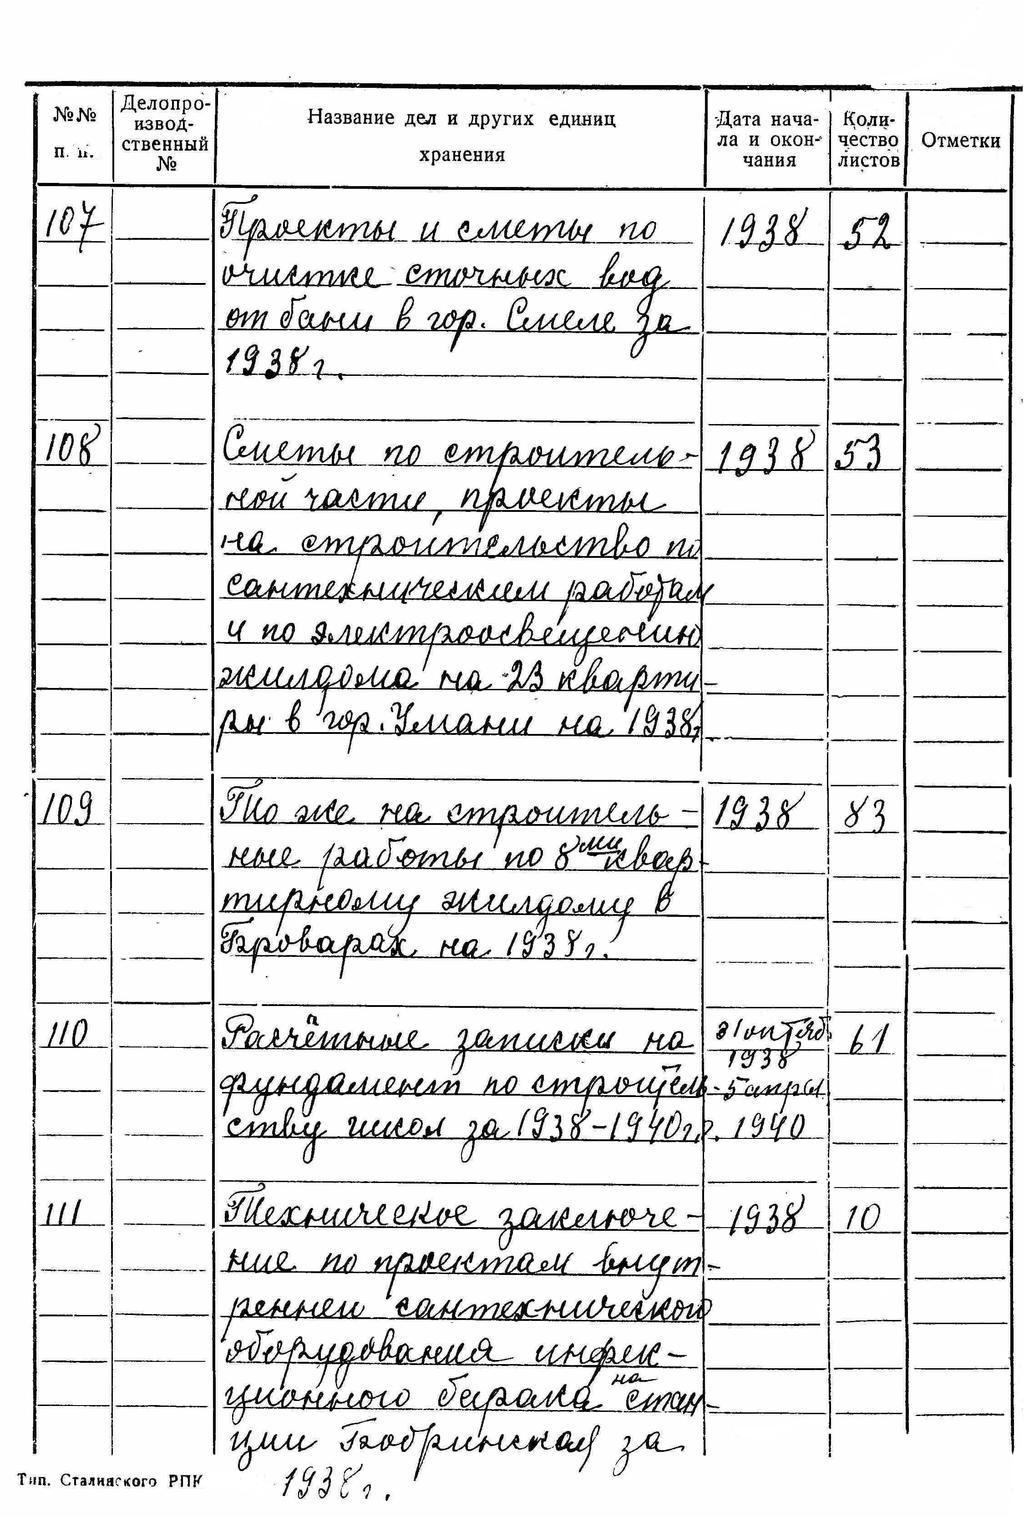 №№ п. п.
Делопро-
извод-
ственный
№
Название дел и других единиц
хранения
Дата нача-
ла и окон-
чания
Коли-
чество
листов
Отметки
107 Проекты и сметы по 1938 52
очистке сточных вод
от бани в гор. Смеле за
1938 г.
108 Сметы по строитель- 1938 53
ной части, проекты
на строительство по
сантехническим работам
и по электроосвещению
жилдома на 23 кварти-
ры в гор. Умани на 1938г
109 То же на строитель- 1938 83
ные работы по 8ми квар-
тирному жилдому в
Броварах на 1938г.
110 Расчётные записки на 31 октяб. 61
1938
фундамент по строитель- -5 апрел
ству школ за 1938-1940г.г. 1940
111 Техническое заключе- 1938 10
ние по проектам внут-
ренней сантехнического
оборудования инфек-
ционного барака на стан-
ции Бобринская за
1938г.
Тип. Сталинского РПК